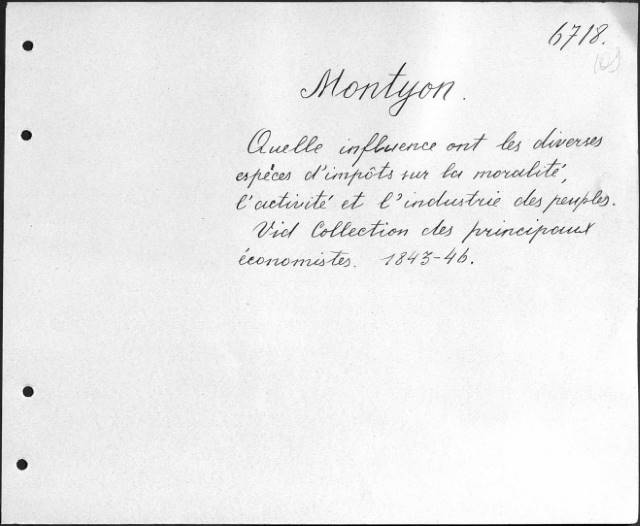 6718.
Montyon.
Quelle influence ont les diverses
espèces d'impôts sur la moralité,
l'activité et l'industrie des peuples.
Vid Collection des principaux
économistes. 1843-46.